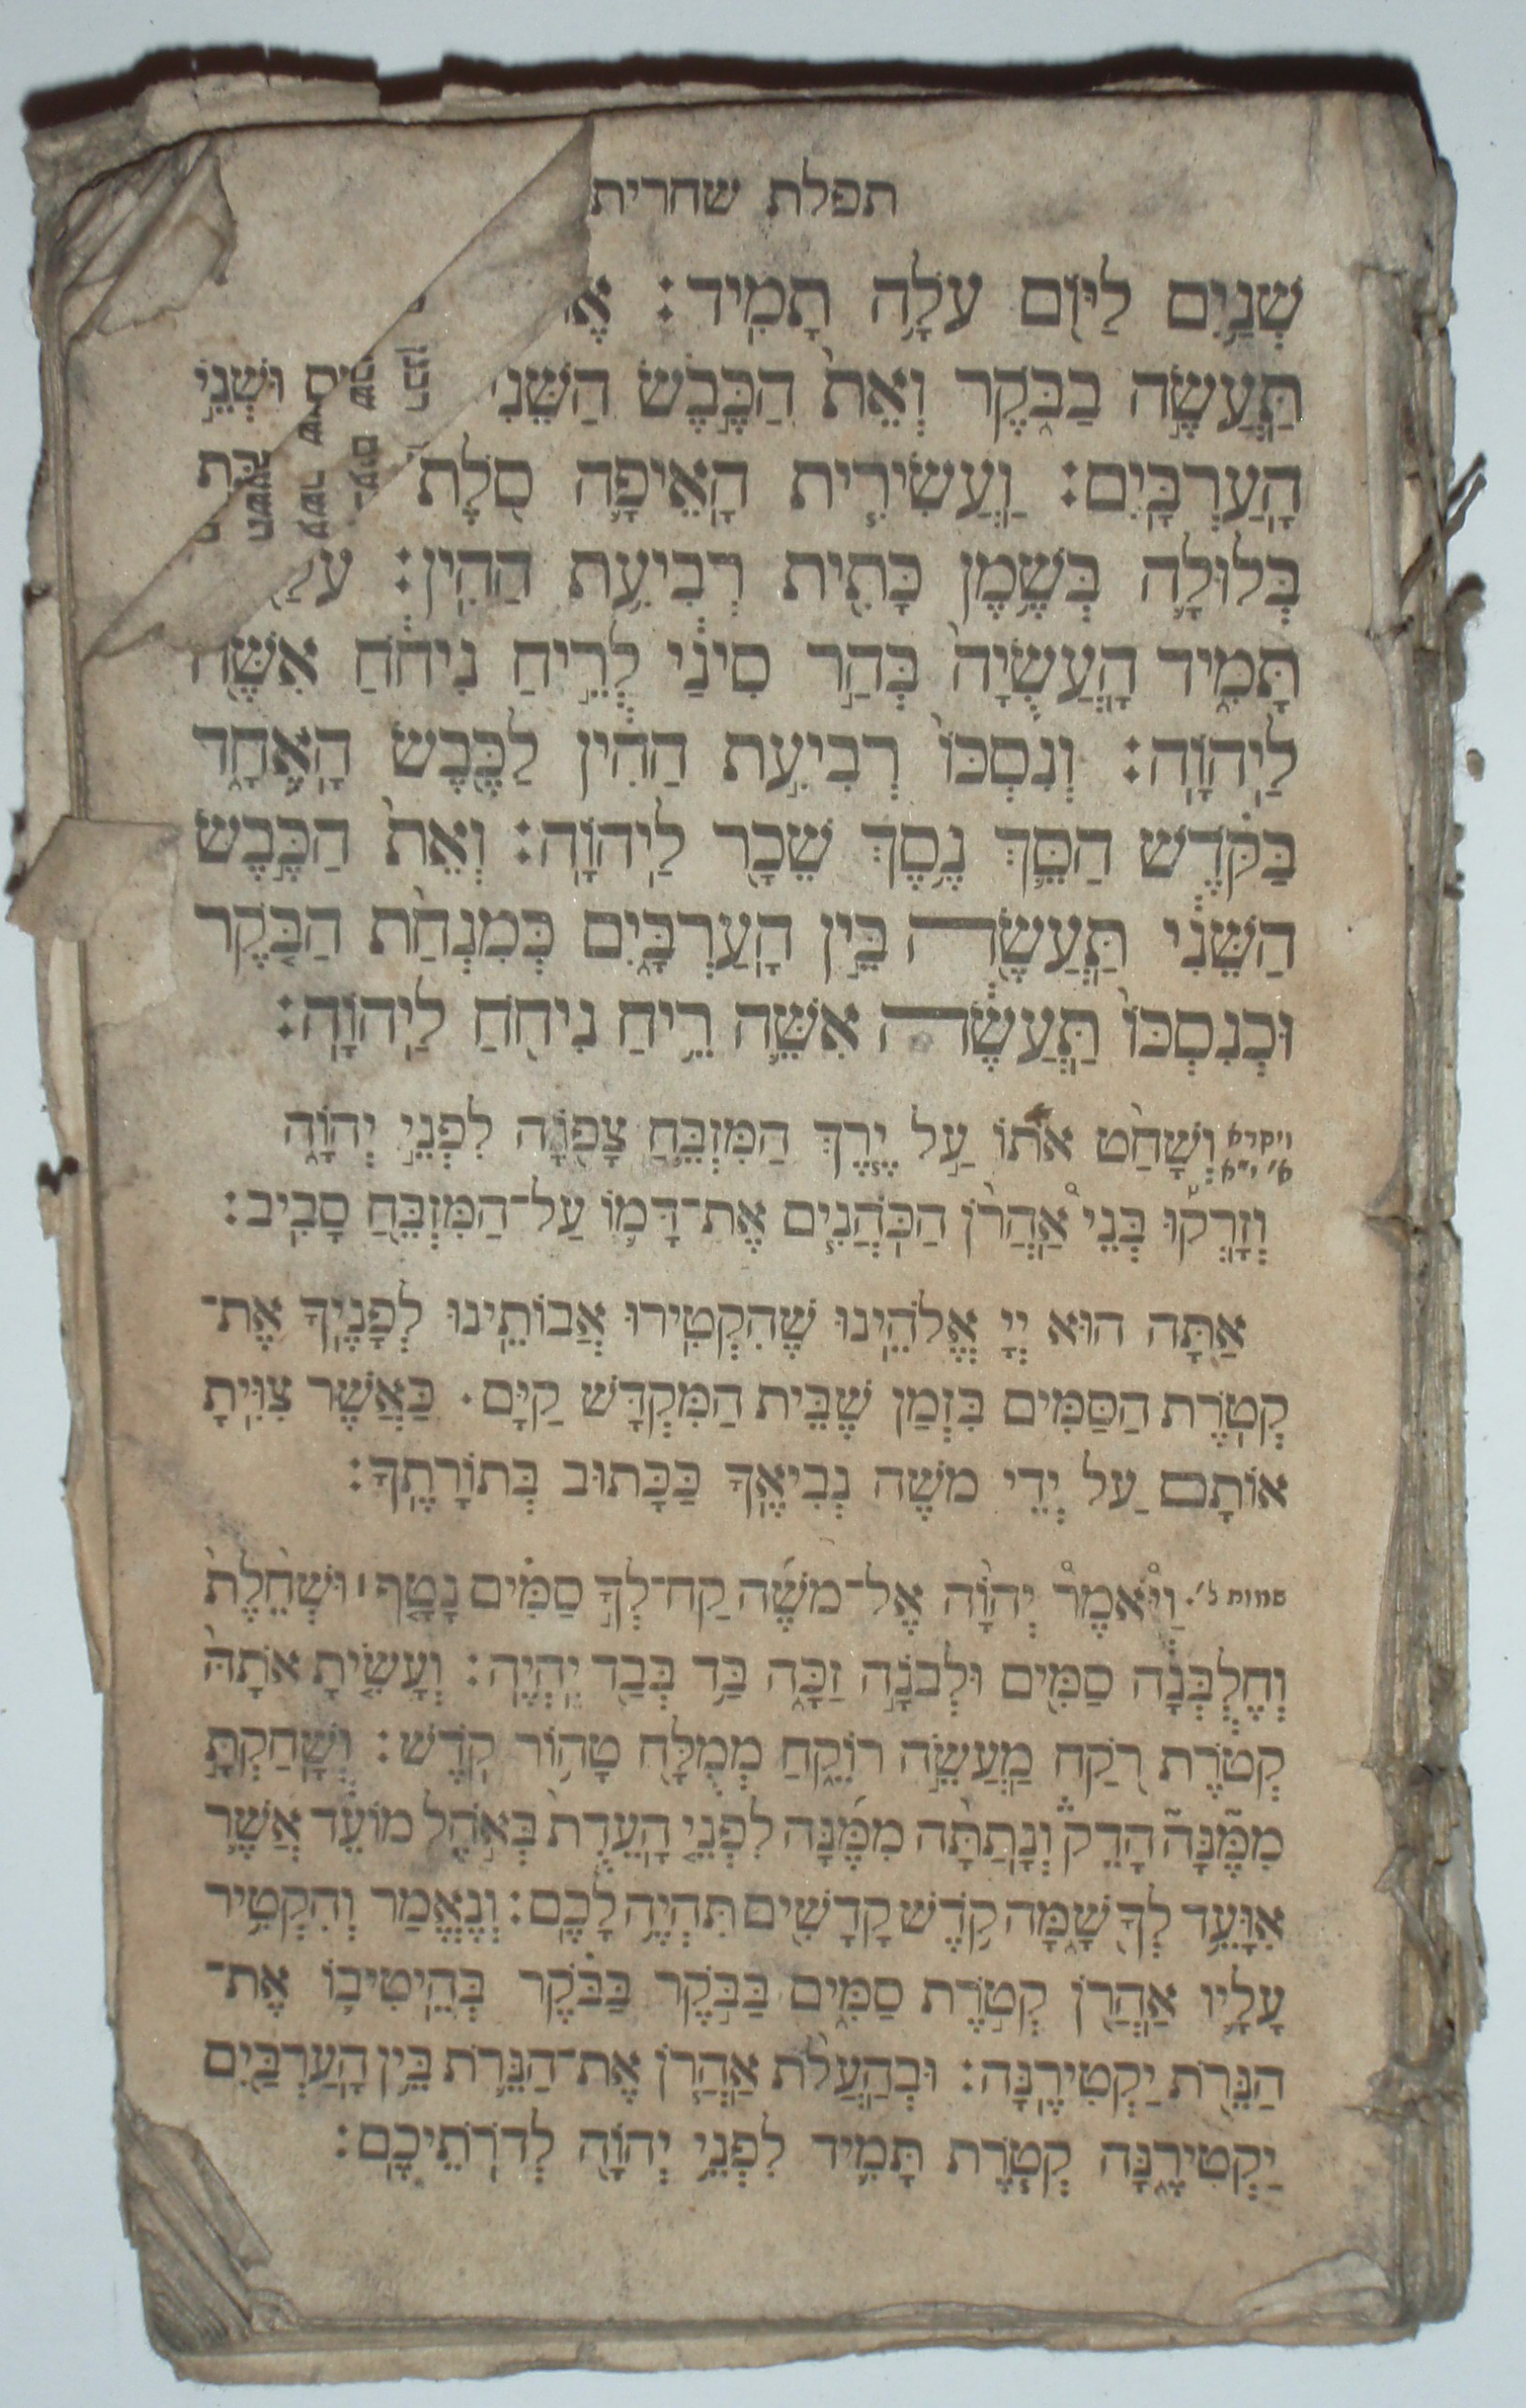 תפלת שחרית
שְׁנַ֥יִם לַיּ֖וֹם עֹלָ֥ה תָמִֽיד׃
תַּֽעֲשֶׂ֣ה בַבֹּ֑קֶר וְאֵת֙ הַכֶּ֣בֶשׂ הַשֵּׁנִ֔י וּשְׁנֵ֣י
הָֽעַרְבָּֽיִם׃ וַֽעֲשִׂירִ֧ית הָֽאֵיפָ֛ה סֹ֖לֶת
בְּלוּלָ֛ה בְּשֶׁ֥מֶן כָּתִ֖ית רְבִיעִ֥ת הַהִֽין׃ עֹלַ֖ת
תָּמִ֑יד הָֽעֲשֻׂיָה֙ בְּהַ֣ר סִינַ֔י לְרֵ֣יחַ נִיחֹ֔חַ אִשֶּׁ֖ה
לַֽיהוָֹֽה׃ וְנִסְכּוֹ֙ רְבִיעִ֣ת הַהִ֔ין לַכֶּ֖בֶשׂ הָֽאֶחָ֑ד
בַּקֹּ֗דֶשׁ הַסֵּ֛ךְ נֶ֥סֶךְ שֵׁכָ֖ר לַֽיהוָֹֽה׃ וְאֵת֙ הַכֶּ֣בֶשׂ
הַשֵּׁנִ֔י תַּֽעֲשֶׂ֖ה בֵּ֣ין הָֽעַרְבָּ֑יִם כְּמִנְחַ֨ת הַבֹּ֤קֶר
וּכְנִסְכּוֹ֙ תַּֽעֲשֶׂ֔ה אִשֵּׁ֛ה רֵ֥יחַ נִיחֹ֖חַ לַֽיהוָֹֽה׃
ויקרא א׳ י״א וְשָׁחַ֨ט אֹת֜וֹ עַ֣ל יֶ֧רֶךְ הַמִּזְבֵּ֛חַ צָפֹ֖נָה לִפְנֵ֣י יְהוָֹ֑ה
וְזָֽרְק֡וּ בְּנֵי֩ אַֽהֲרֹ֨ן הַכֹּֽהֲנִ֧ים אֶת־דָּמ֛וֹ עַל־הַמִּזְבֵּ֖חַ סָבִֽיב׃
אַתָּה הוּא יְיָ אֱלֹהֵינוּ שֶׁהִקְטִירוּ אֲבוֹתֵינוּ לְפָנֶיךָ אֶת־
קְטֹרֶת הַסַּמִּים בִּזְמַן שֶׁבֵּית הַמִּקְדָּשׁ קַיָּם. כַּאֲשֶׁר צִוִּיתָ
אוֹתָם עַל יְדֵי משֶׁה נְבִיאֶךָ כַּכָּתוּב בְּתוֹרָתֶךָ׃
שמות ל׳. וַיֹּאמֶר֩ יְהוָֹ֨ה אֶל־משֶׁ֜ה קַח־לְךָ֣ סַמִּ֗ים נָטָ֤ף ׀ וּשְׁחֵ֨לֶת֙
וְחֶלְבְּנָ֔ה סַמִּ֖ים וּלְבֹנָ֣ה זַכָּ֑ה בַּ֥ד בְּבַ֖ד יִֽהְיֶֽה׃ וְעָשִׂ֤יתָ אֹתָהּ֙
קְטֹ֔רֶת רֹ֖קַח מַֽעֲשֵׂ֣ה רוֹקֵ֑חַ מְמֻלָּ֖ח טָה֥וֹר קֹֽדֶשׁ׃ וְשָֽׁחַקְתָּ֣
מִמֶּ֘נָּה֮ הָדֵק֒ וְנָֽתַתָּ֨ה מִמֶּ֜נָּה לִפְנֵ֤י הָֽעֵדֻת֙ בְּאֹ֣הֶל מוֹעֵ֔ד אֲשֶׁ֛ר
אִוָּעֵ֥ד לְךָ֖ שָׁ֑מָּה קֹ֥דֶשׁ קָדָשִׁ֖ים תִּֽהְיֶ֥ה לָכֶֽם׃ וְנֶאֱמַר וְהִקְטִ֥יר
עָלָ֛יו אַֽהֲרֹ֖ן קְטֹ֣רֶת סַמִּ֑ים בַּבֹּ֣קֶר בַּבֹּ֗קֶר בְּהֵֽיטִיב֛וֹ אֶת־
הַנֵּרֹ֖ת יַקְטִירֶֽנָּה׃ וּבְהַֽעֲלֹ֨ת אַֽהֲרֹ֧ן אֶת־הַנֵּרֹ֛ת בֵּ֥ין הָֽעַרְבַּ֖יִם
יַקְטִירֶ֑נָּה קְטֹ֧רֶת תָּמִ֛יד לִפְנֵ֥י יְהוָֹ֖ה לְדֹרֹֽתֵיכֶֽם׃